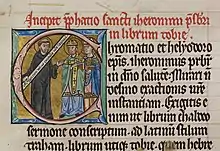 Incipit p̄fatio sancti iheronimi p̄sbri
in librum tobie.
Chromatio et helyodoro
ep̄is. iheronimus presbr̄
in dn̄o salutē. Mirari n̄
desino exactionis ur̄e
instantiam. Exigitis e
nim ut librum chaldeo
sermone conscriptum ad latinū stilū
traham. librum utiq; tobie. quem hebre